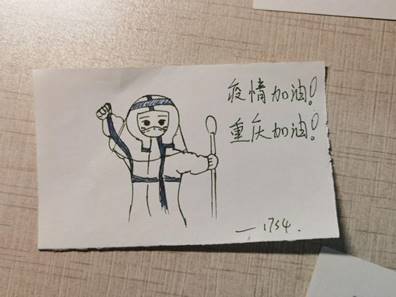 疫情加油!
重庆加油!
— 1734.